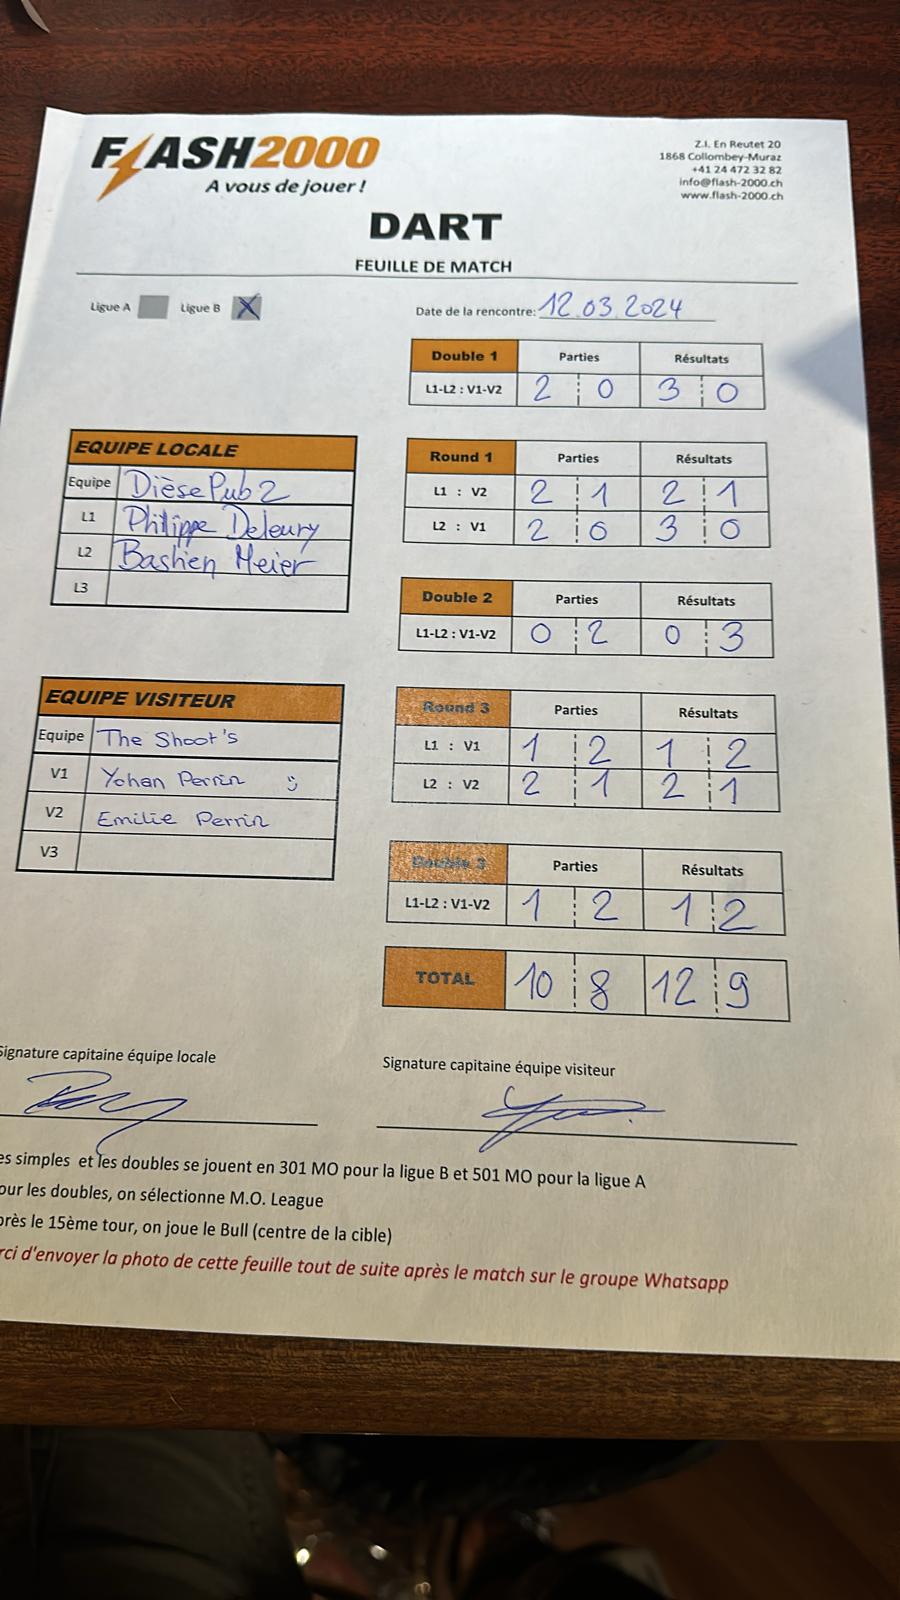 FLASH2000
A vous de jouer !
Z.I. En Reutet 20
1868 Collombey-Muraz
+41 24 472 32 82
info@flash-2000.ch
www.flash-2000.ch
DART
FEUILLE DE MATCH
Ligue A Ligue B X
Date de la rencontre: 12.03.2024
Double 1 Parties Résultats
L1-L2 : V1-V2 2 0 3 0
EQUIPE LOCALE
Equipe Dièse Pub 2
L1 Philippe Deleury
L2 Bastien Meier
L3
Round 1 Parties Résultats
L1 : V2 2 1 2 1
L2 : V1 2 0 3 0
Double 2 Parties Résultats
L1-L2 : V1-V2 0 2 0 3
EQUIPE VISITEUR
Equipe The Shoot's
V1 Yohan Perrin :)
V2 Emilie Perrin
V3
Round 3 Parties Résultats
L1 : V1 1 2 1 2
L2 : V2 2 1 2 1
Double 3 Parties Résultats
L1-L2 : V1-V2 1 2 1 2
TOTAL 10 8 12 9
Signature capitaine équipe locale
Signature capitaine équipe visiteur
es simples et les doubles se jouent en 301 MO pour la ligue B et 501 MO pour la ligue A
our les doubles, on sélectionne M.O. League
près le 15ème tour, on joue le Bull (centre de la cible)
rci d'envoyer la photo de cette feuille tout de suite après le match sur le groupe Whatsapp